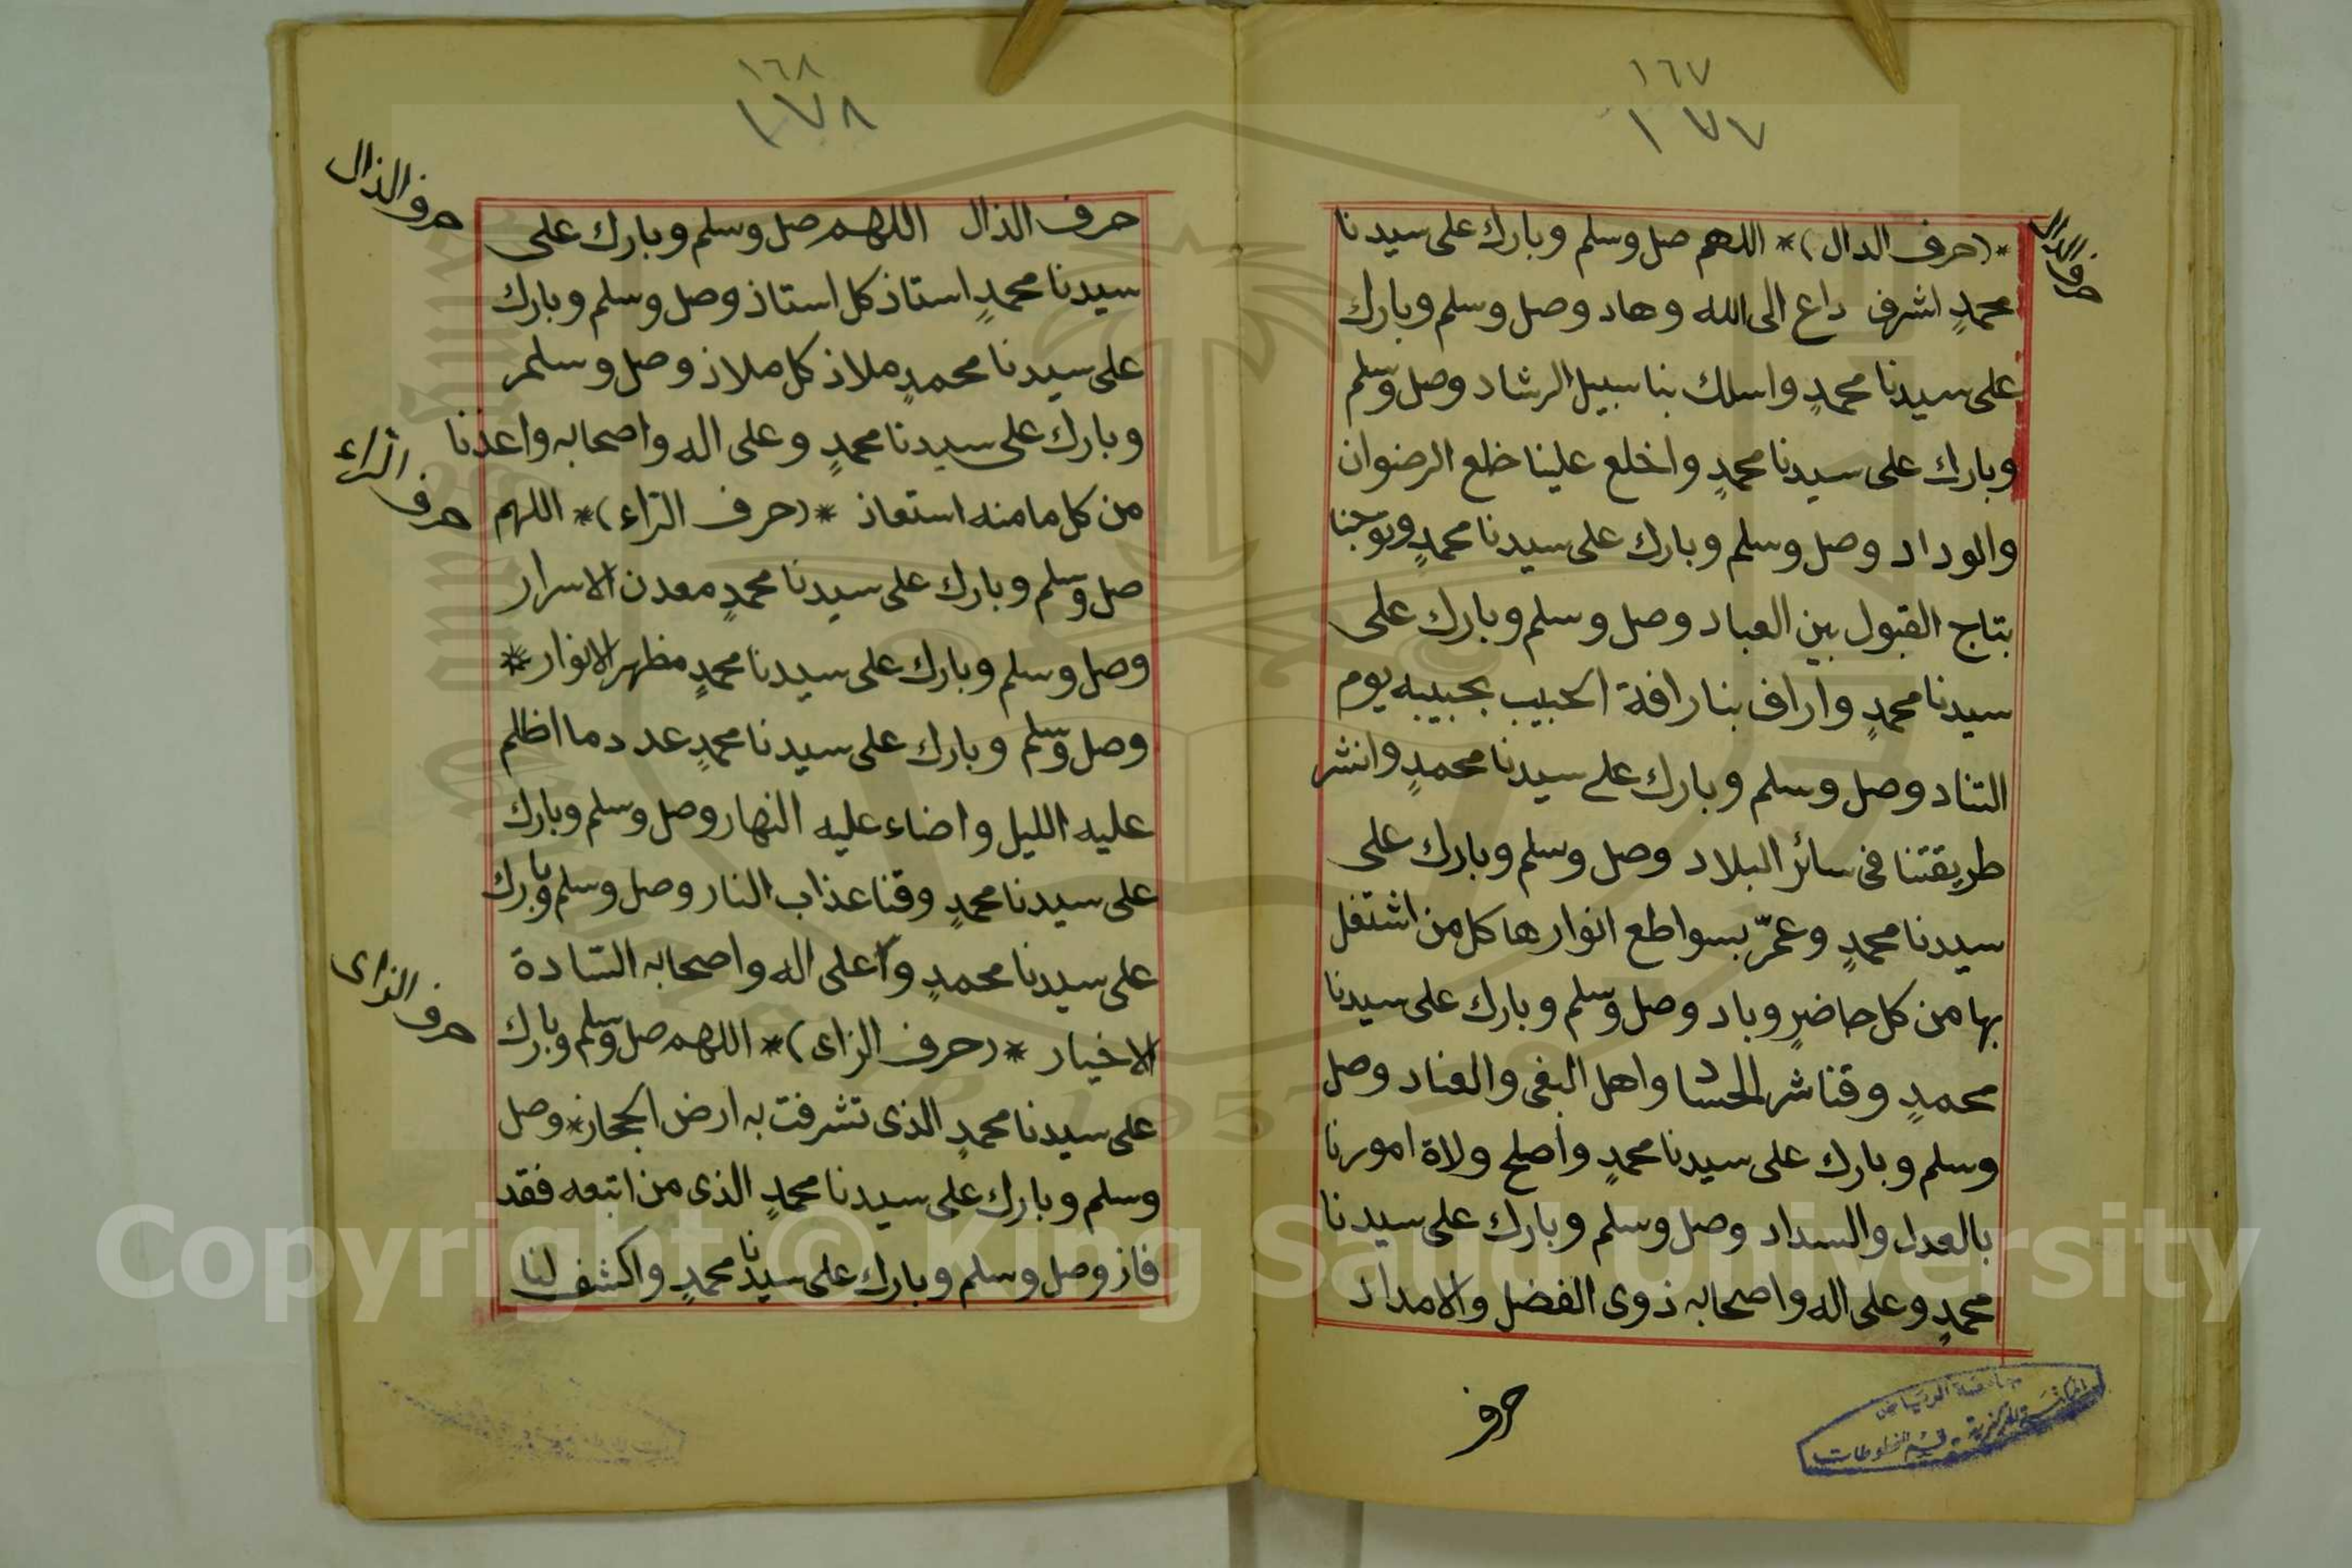 ١٦٧
١٧٧
حرف الدال
*(حرف الدال)* اللهم صل وسلم وبارك على سيدنا
محمدٍ اشرف داع الى الله وهاد وصل وسلم وبارك
على سيدنا محمدٍ واسلك بنا سبيل الرشاد وصل وسلم
وبارك على سيدنا محمدٍ واخلع علينا خلع الرضوان
والوداد وصل وسلم وبارك على سيدنا محمدٍ وتوجنا
بتاج القبول بين العباد وصل وسلم وبارك على
سيدنا محمدٍ واراف بنا رافة الحبيب بحبيبه يوم
التناد وصل وسلم وبارك على سيدنا محمدٍ وانشر
طريقتنا فى سائر البلاد وصل وسلم وبارك على
سيدنا محمدٍ وعمّر بسواطع انوارها كل من اشتغل
بها من كل حاضرٍ وباد وصل وسلم وبارك على سيدنا
محمدٍ وقنا شر الحساد واهل البغى والعناد وصل
وسلم وبارك على سيدنا محمدٍ وأصلح ولاة امورنا
بالعدل والسداد وصل وسلم وبارك على سيدنا
محمدٍ وعلى اله واصحابه ذوى الفضل والامداد
حرف
جامعة الرياض
المكتبة المركزية قسم المخطوطات
١٦٨
١٧٨
حرف الذال
حرف الذال اللهم صل وسلم وبارك على
سيدنا محمدٍ استاذ كل استاذ وصل وسلم وبارك
على سيدنا محمدٍ ملاذ كل ملاذ وصل وسلم
وبارك على سيدنا محمدٍ وعلى اله واصحابه واعذنا
حرف الرّاء
من كل ما منه استعاذ *(حرف الرّاء)* اللهم
صل وسلم وبارك على سيدنا محمدٍ معدن الاسرار
وصل وسلم وبارك على سيدنا محمدٍ مظهر الانوار *
وصل وسلم وبارك على سيدنا محمدٍ عدد ما اظلم
عليه الليل واضاء عليه النهار وصل وسلم وبارك
على سيدنا محمدٍ وقنا عذاب النار وصل وسلم وبارك
على سيدنا محمدٍ وعلى اله واصحابه السّادة
حرف الزاى
الاخيار *(حرف الزاى)* اللهم صل وسلم وبارك
على سيدنا محمدٍ الذى تشرفت به ارض الحجاز * وصل
وسلم وبارك على سيدنا محمدٍ الذى من اتبعه فقد
فاز وصل وسلم وبارك على سيدنا محمدٍ واكشف لنا
Copyright © King Saud University
1957